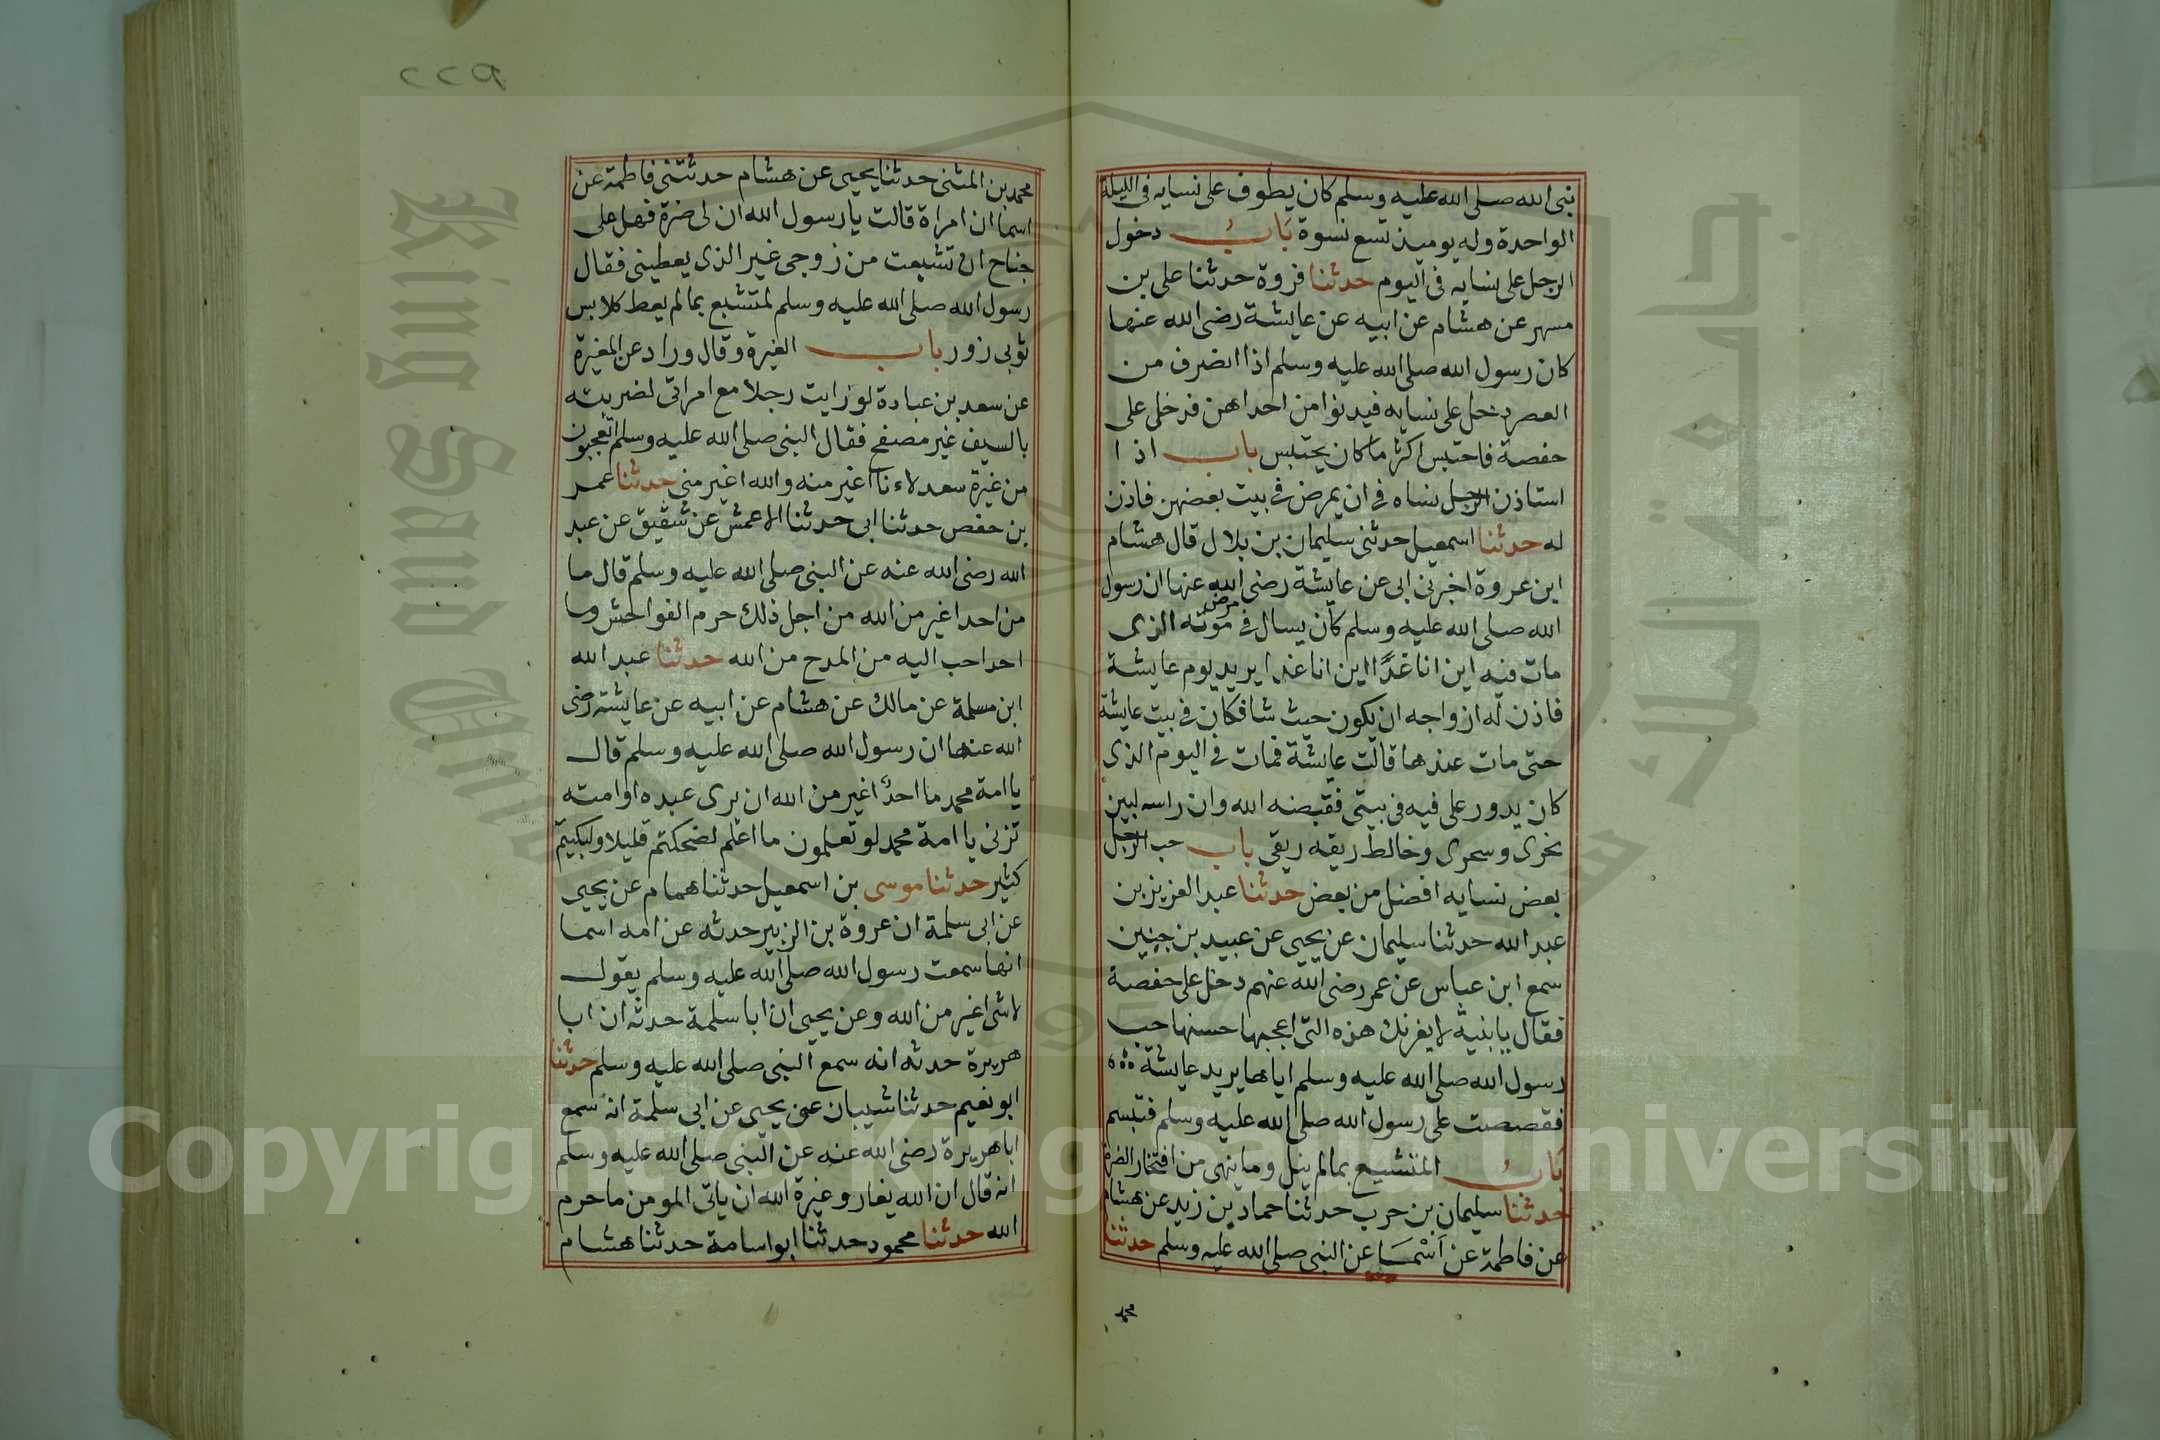 نبى الله صلى الله عليه وسلم كان يطوف على نسايه فى الليلة
الواحدة وله يوميذ تسع نسوة باب دخول
الرجل على نسايه فى اليوم حدثنا فروة حدثنا على بن
مسهر عن هشام عن ابيه عن عايشة رضى الله عنها
كان رسول الله صلى الله عليه وسلم اذا انصرف من
العصر دخل على نسايه فيدنوا من احداهن فدخل على
حفصة فاحتبس اكثر ما كان يحتبس باب اذا
استاذن الرجل نساه فى ان يمرض فى بيت بعضهن فاذن
له حدثنا اسمعيل حدثنى سليمان بن بلال قال هشام
ابن عروة اخبرنى ابى عن عايشة رضى الله عنها ان رسول
الله صلى الله عليه وسلم كان يسال فى مرض موته الذى
مات فيه اين انا غدًا اين انا غدا يريد يوم عايشة
فاذن له ازواجه ان يكون حيث شا فكان فى بيت عايشة
حتى مات عندها قالت عايشة فمات فى اليوم الذى
كان يدور على فيه فى بيتى فقبضه الله وان راسه لبين
نحرى وسحرى وخالط ريقه ريقى باب حب الرجل
بعض نسايه افضل من بعض حدثنا عبد العزيز بن
عبد الله حدثنا سليمان عن يحيى عن عبيد بن حنين
سمع ابن عباس عن عمر رضى الله عنهم دخل على حفصة
فقال يا بنية لا يغرنك هذه التى اعجبها حسنها حب
رسول الله صلى الله عليه وسلم اياها يريد عايشة
فقصصت على رسول الله صلى الله عليه وسلم فتبسم
باب المتشبع بما لم ينل وما ينهى من افتخار الضرة
حدثنا سليمان بن حرب حدثنا حماد بن زيد عن هشام
عن فاطمة عن اسما عن النبى صلى الله عليه وسلم حدثنا
محمد
محمد بن المثنى حدثنا يحيى عن هشام حدثتنى فاطمة عن
اسما ان امراة قالت يا رسول الله ان لى ضرة فهل على
جناح ان تشبعت من زوجى غير الذى يعطينى فقال
رسول الله صلى الله عليه وسلم لمتشبع بما لم يعط كلابس
ثوبى زور باب الغيرة وقال وراد عن المغيرة
عن سعد بن عبادة لو رايت رجلا مع امراتى لضربته
بالسيف غير مصفح فقال النبى صلى الله عليه وسلم اتعجبون
من غيرة سعد لاءنا اغير منه والله اغير منى حدثنا عمر
بن حفص حدثنا ابى حدثنا الاعمش عن شقيق عن عبد
الله رضى الله عنه عن النبى صلى الله عليه وسلم قال ما
من احد اغير من الله من اجل ذلك حرم الفواحش وما
احد احب اليه من المدح من الله حدثنا عبد الله
ابن مسلمة عن مالك عن هشام عن ابيه عن عايشة رضى
الله عنها ان رسول الله صلى الله عليه وسلم قال
يا امة محمد ما احد اغير من الله ان يرى عبده او امته
تزنى يا امة محمد لو تعلمون ما اعلم لضحكتم قليلا ولبكيتم
كثير حدثنا موسى بن اسمعيل حدثنا همام عن يحيى
عن ابى سلمة ان عروة بن الزبير حدثه عن امه اسما
انها سمعت رسول الله صلى الله عليه وسلم يقول
لا شى اغير من الله وعن يحيى ان ابا سلمة حدثه ان ابا
هريرة حدثه انه سمع النبى صلى الله عليه وسلم حدثنا
ابو نعيم حدثنا شيبان عن يحيى عن ابى سلمة انه سمع
ابا هريرة رضى الله عنه عن النبى صلى الله عليه وسلم
انه قال ان الله يغار وغيرة الله ان ياتى المومن ما حرم
الله حدثنا محمود حدثنا ابو اسامة حدثنا هشام
Copyright © King Saud University